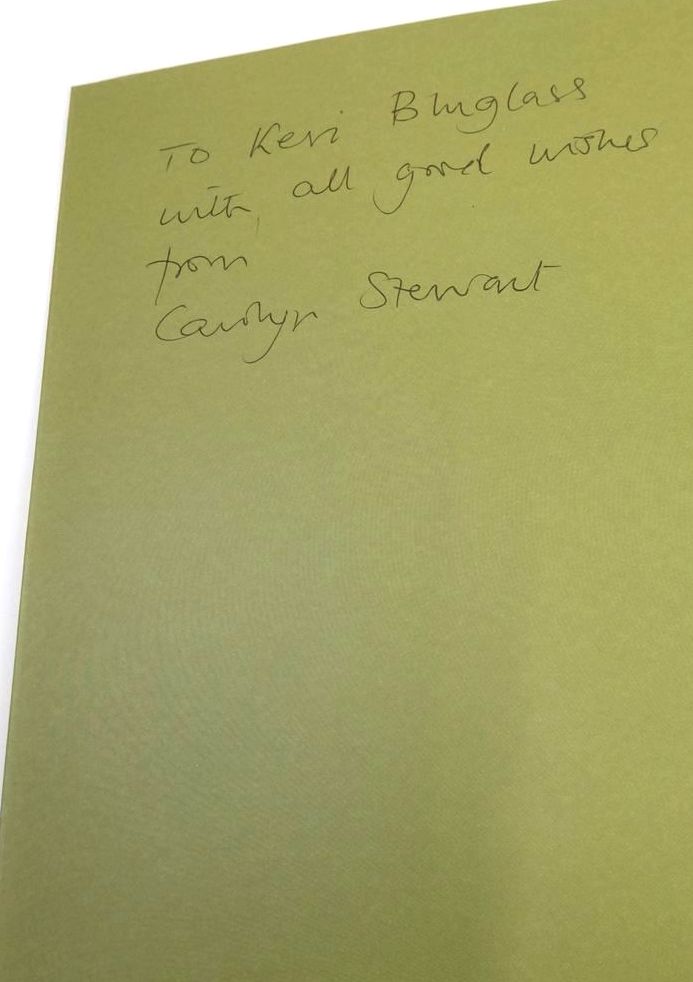 To Keri Bluglass
with all good wishes
from
Carolyn Stewart